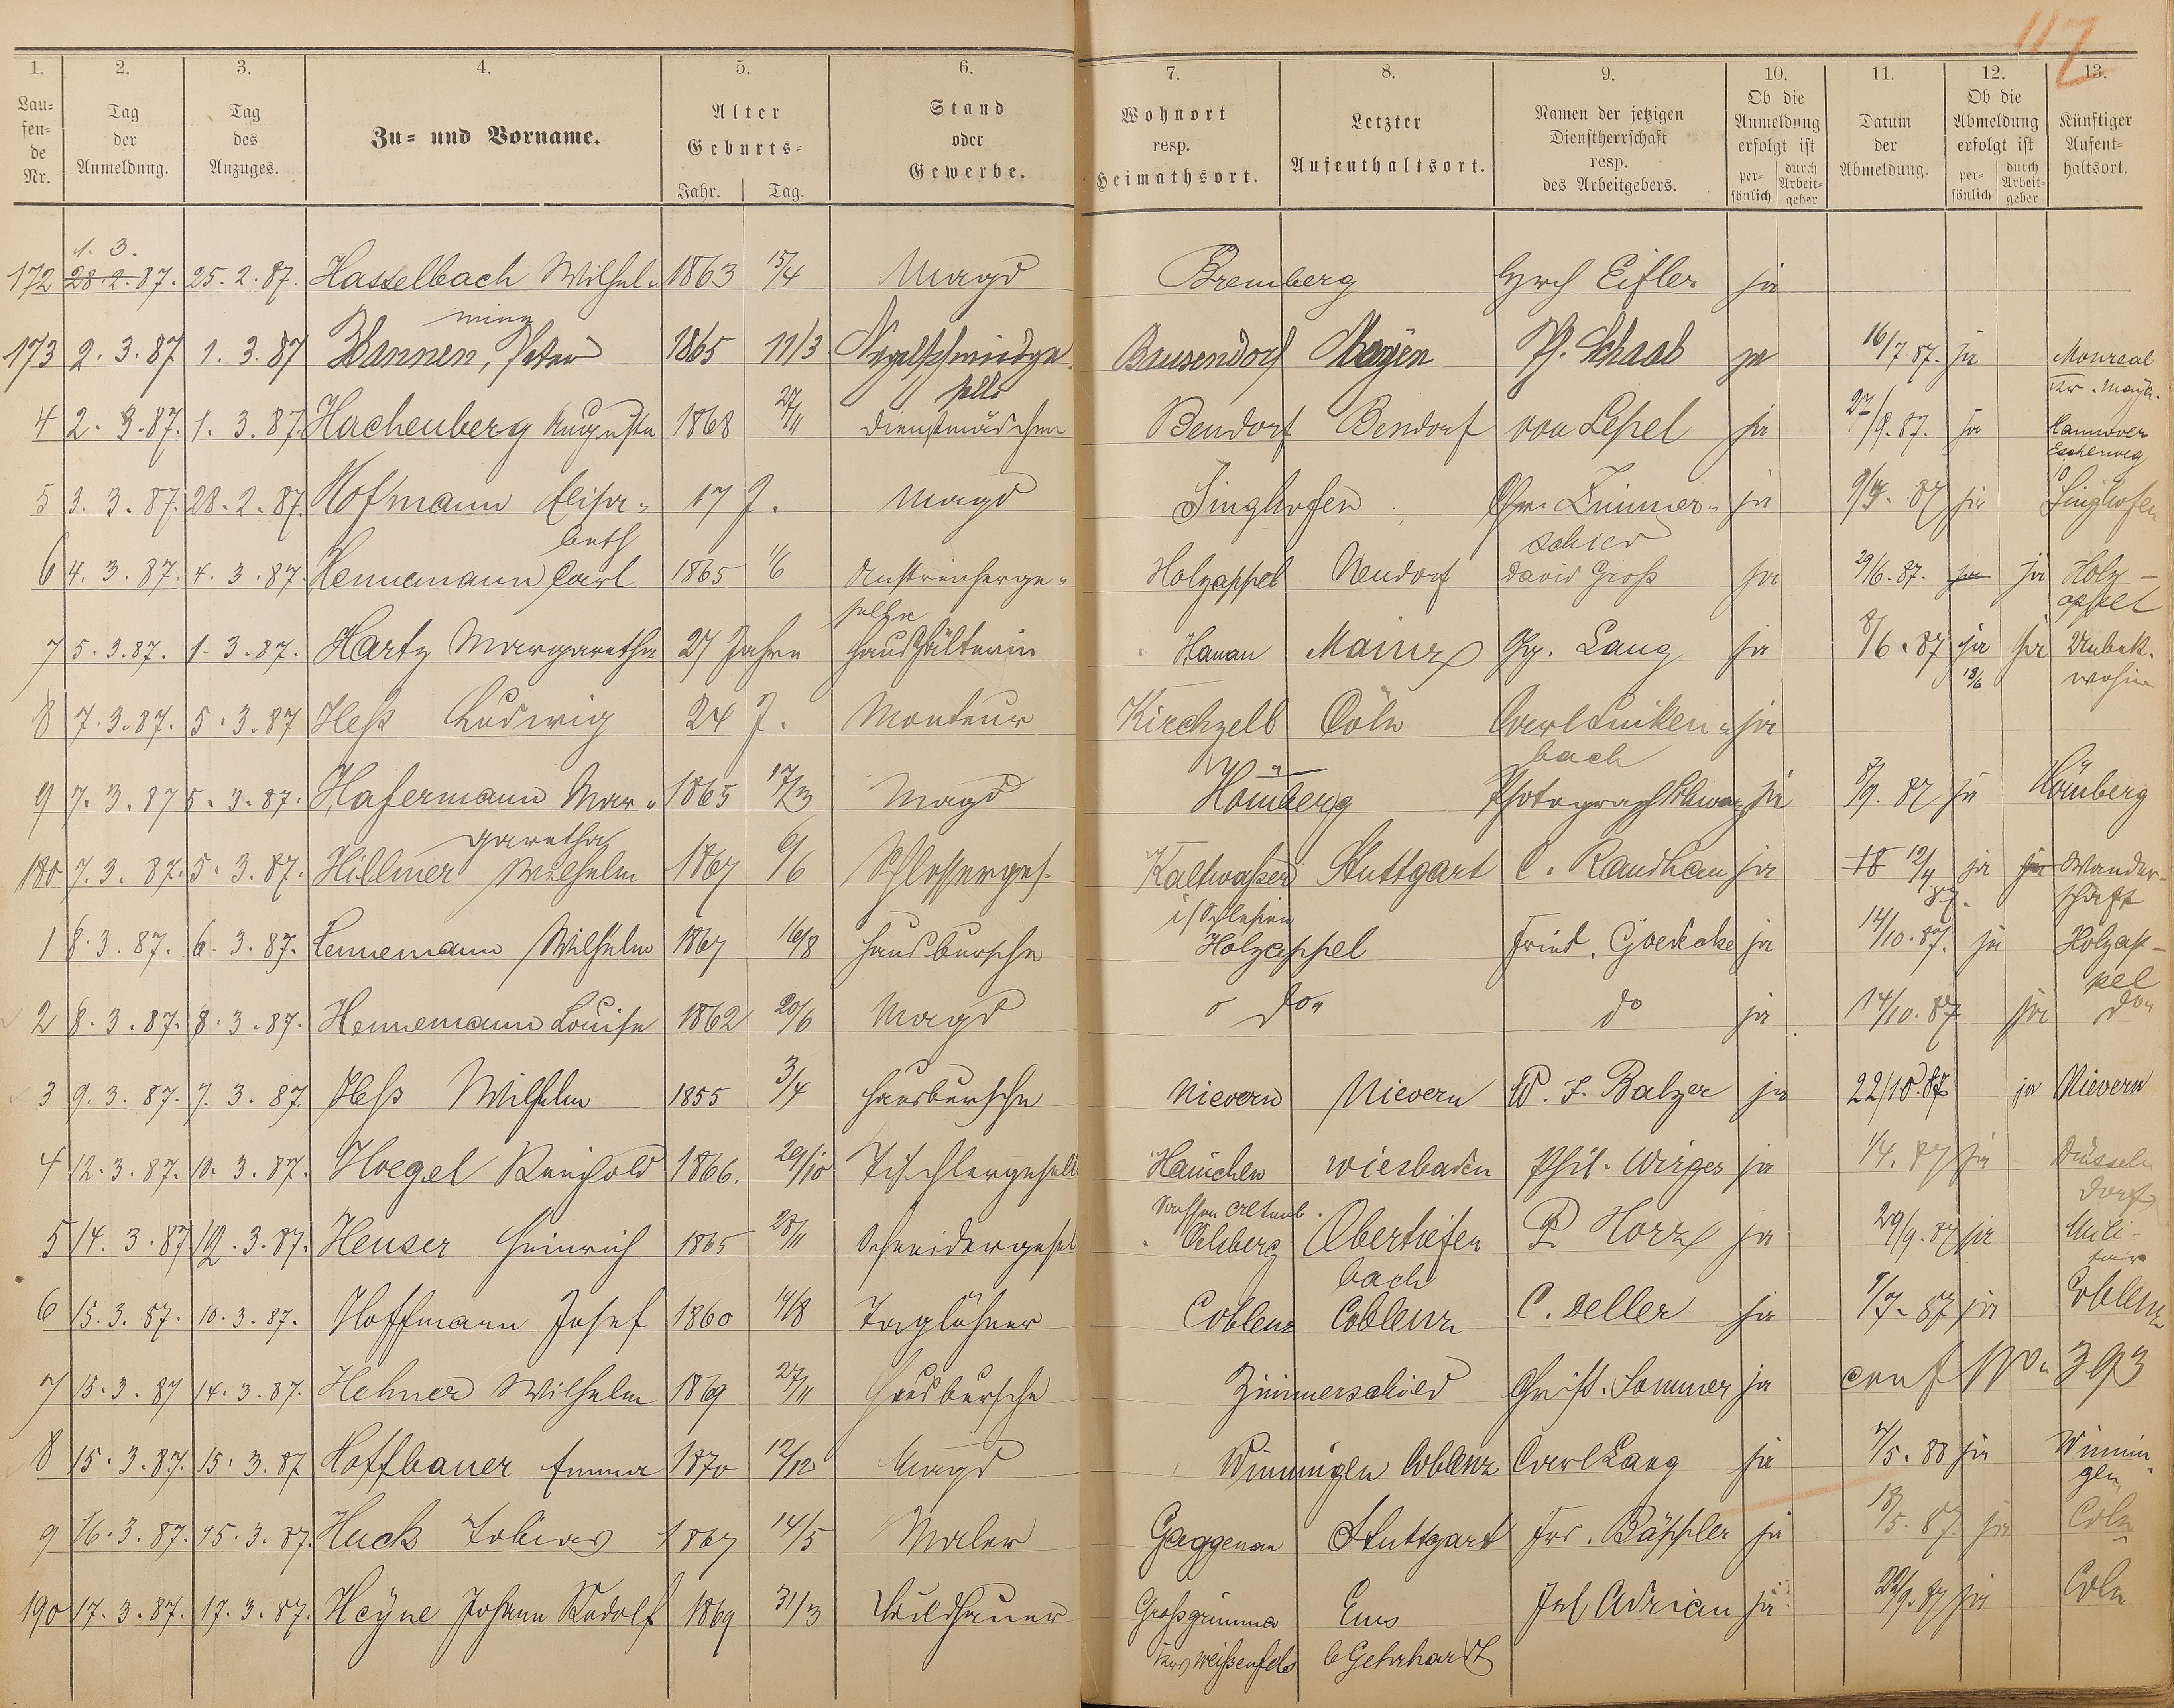 117
1. 2. 3. 4. 5. 6. 7. 8. 9. 10. 11. 12. 13.
Lau=fen=de Nr. Tag der Anmeldung. Tag des Anzuges. Zu= und Vorname. Alter Geburts= Jahr. Tag. Stand oder Gewerbe. Wohnort resp. Heimathsort. Letzter Aufenthaltsort. Namen der jetzigen Dienstherrschaft resp. des Arbeitgebers. Ob die Anmeldung erfolgt ist per=sönlich durch Arbeit=geber Datum der Abmeldung. Ob die Abmeldung erfolgt ist per=sönlich durch Arbeit=geber Künftiger Aufent=haltsort.
1. 3.
172 28.2.87. 25.2.87. Hasselbach Wilhel= 1863 15/4 Magd Bremberg Hrch Eifler ja
mine
173 2.3.87 1.3.87 Hannen, Peter 1865 11/3 Nagelschmiedge Bausendorf Mayen Ph. Schaab ja 16/7 87. ja Monreal
selle Kr. Mayen
4 2.3.87. 1.3.87. Hachenberg Auguste 1868 27/11 Dienstmädchen Bendorf Bendorf von Lepel ja 27/9.87. ja Hannover
Escherweg
10
5 3.3.87. 28.2.87. Hofmann Elisa= 17 J. Magd Singhofen Chr. Zimmer= ja 9/7. 87 ja Singhofen
beth schied
6 4.3.87. 4.3.87. Hennemann Carl 1865 1/6 Anstreicherge= Holzappel Nendorf David Groß ja 29/6.87. ja ja Holz-
selle appel
7 5.3.87. 1.3.87. Hartz Margaretha 27 Jahre Haushälterin Hanau Mainz Lang ja 8/6.87 ja ja Unbek.
18/6 wohin
8 7.3.87. 5.3.87 Heß Ludwig 24 J. Monteur Kirchzell Cöln Carl Linken= ja
bach
9 7.3.87 5.3.87. Hafermann Mar= 1865 17/3 Magd Hömberg Photograph ja 8/9. 87 ja Hömberg
garetha
180 7.3.87. 5.3.87. Hillmer Wilhelm 1867 6/6 Schlosserges. Kaltwasser Stuttgart C. Raudhan ja 18 12/4 ja ja Wander-
i/Schlesien 87. schaft
1 8.3.87. 6.3.87. Hennemann Wilhelm 1867 16/8 Hausbursche Holzappel Fried. Goedecke ja 14/10.87. ja Holzap-
pel
2 8.3.87. 8.3.87. Hennemann Louise 1862 20/6 Magd do do ja 14/10.87 ja do
3 9.3.87. 7.3.87. Heß Wilhelm 1855 3/4 Hausbursche Nievern Nievern W. F. Balzer ja 22/10.87 ja Nievern
4 12.3.87. 10.3.87. Hoegel Reinhold 1866. 29/10 Tischlergesell Hainichen Wiesbaden Phil. Wirges ja 1/4. 87 ja Düssel=
Sachsen Altenb. dorf
5 14.3.87 12.3.87. Heuser Heinrich 1865 28/11 Schneidergesel Oelsberg Obertiefen P. Horz ja 29/9.87 ja Mili-
bach tair
6 15.3.87. 10.3.87. Hoffmann Josef 1860 14/8 Taglöhner Coblenz Coblenz C. Deller ja 9/7. 87 ja Coblenz
7 15.3.87 14.3.87. Hehner Wilhelm 1869 27/11 Hausbursche Zimmerschied Christ. Sommer ja conf No. 393
8 15.3.87. 15.3.87 Hoffbauer Emma 1870 12/12 Magd Winningen Coblenz Carl Lang ja 7/5. 88 ja Winnin=
gen
9 16.3.87. 15.3.87. Huck Tobias 1867 14/5 Maler Gaggenau Stuttgart Frd. Bäppler ja 18/5. 87. ja Coln
190 17.3.87. 17.3.87. Heyne Johann Rudolf 1869 31/3 Bildhauer Großgrimma Ems Jul Adrian ja 22/9.87 ja Coln
Krs Weißenfels b Gehrhardt